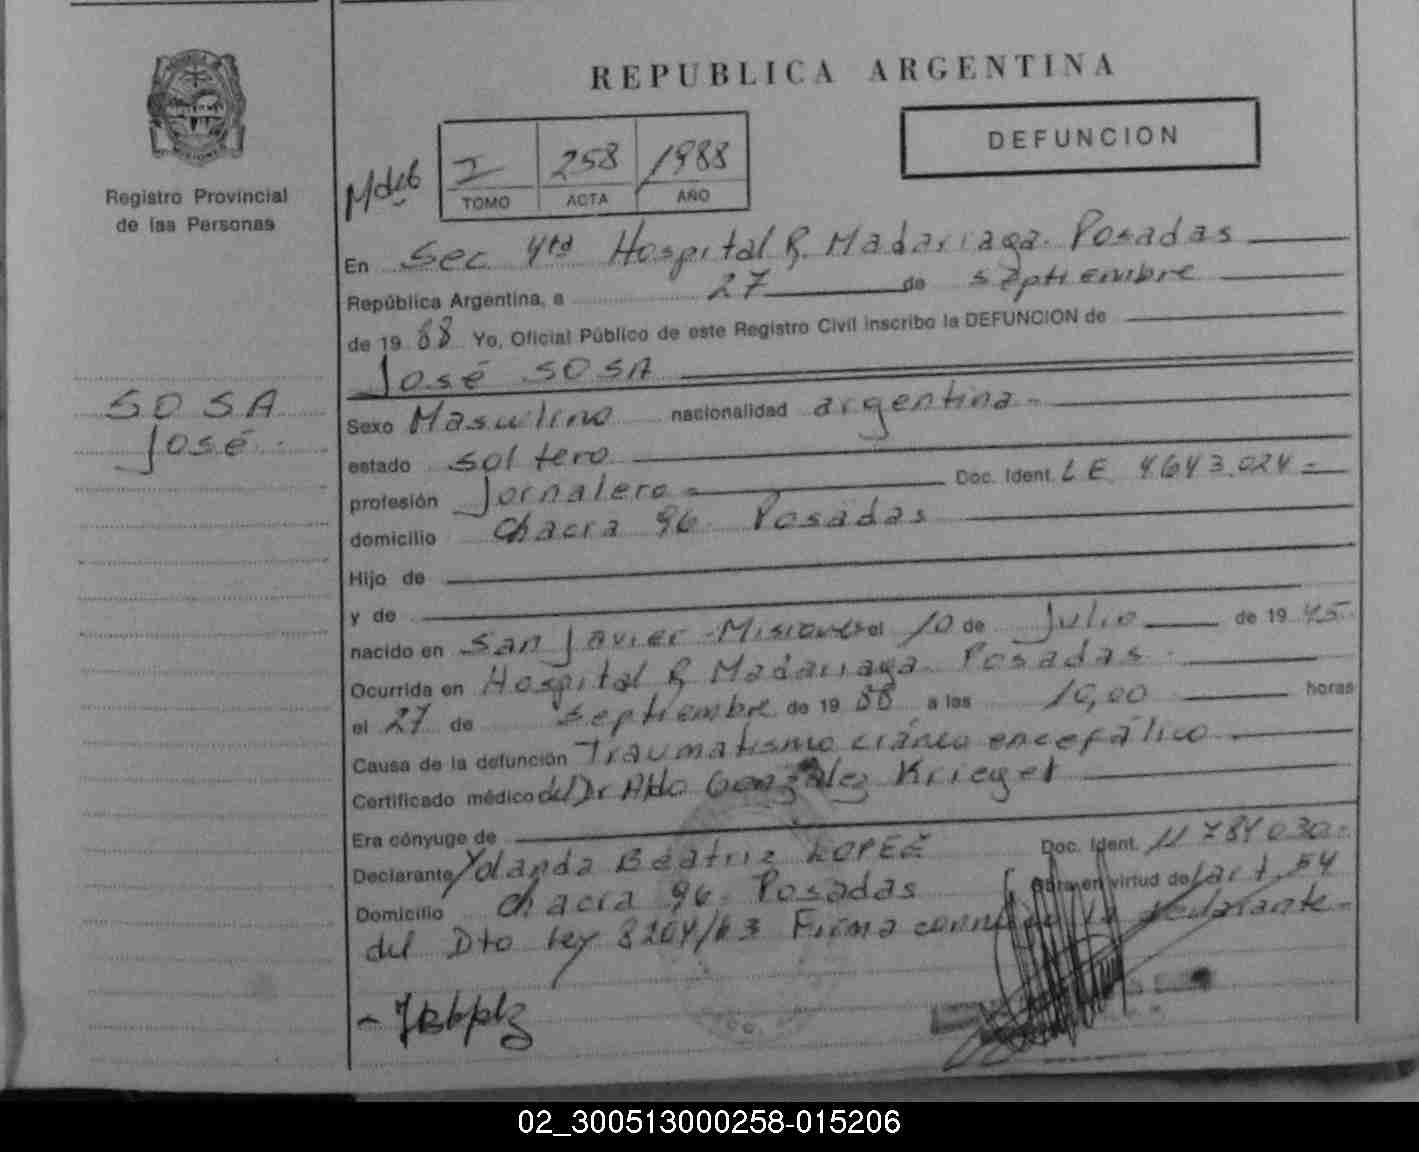 REPUBLICA ARGENTINA
DEFUNCION
I 258 1988
TOMO ACTA AÑO
Registro Provincial
de las Personas
En Sec 4ta Hospital R. Madariaga. Posadas
República Argentina, a 27 de septiembre
de 19 88 Yo, Oficial Público de este Registro Civil inscribo la DEFUNCION de
José SOSA
SOSA
José.
Sexo Masculino nacionalidad argentina.-
estado soltero
profesión Jornalero.- Doc. Ident. L E 4.643.024.-
domicilio Chacra 96. Posadas
Hijo de
y de
nacido en San Javier-Misiones el 10 de Julio de 19 45.
Ocurrida en Hospital R. Madariaga. Posadas.
el 27 de septiembre de 19 88 a las 10,00 horas
Causa de la defunción Traumatismo cráneo encefálico
Certificado médico del Dr Aldo González Krieger
Era cónyuge de
Declarante Yolanda Beatriz LOPEZ Doc. Ident. 11 784 030.-
Domicilio Chacra 96. Posadas Obra en virtud del art. 54
del Dto Ley 8204/63 Firma conmigo la declarante.-
02_300513000258-015206